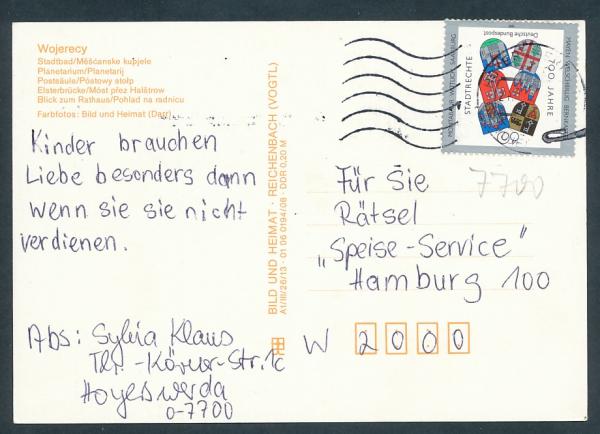 Wojerecy
Stadtbad/Měšćanske kupjele
Planetarium/Planetarij
Postsäule/Póstowy stołp
Elsterbrücke/Móst přez Halštrow
Blick zum Rathaus/Pohlad na radnicu
Farbfotos: Bild und Heimat (Darr)
Kinder brauchen
Liebe besonders dann
wenn sie sie nicht
verdienen.
Abs: Sylvia Klaus
Th.-Körner-Str.1c
Hoyeswerda
o-7700
BILD UND HEIMAT · REICHENBACH (VOGTL)
A1/III/26/13 · 01 06 0194/08 · DDR 0,20 M
Deutsche Bundespost
700 JAHRE
STADTRECHTE
60
7700
Für Sie
Rätsel
„Speise-Service"
Hamburg 100
W 2000